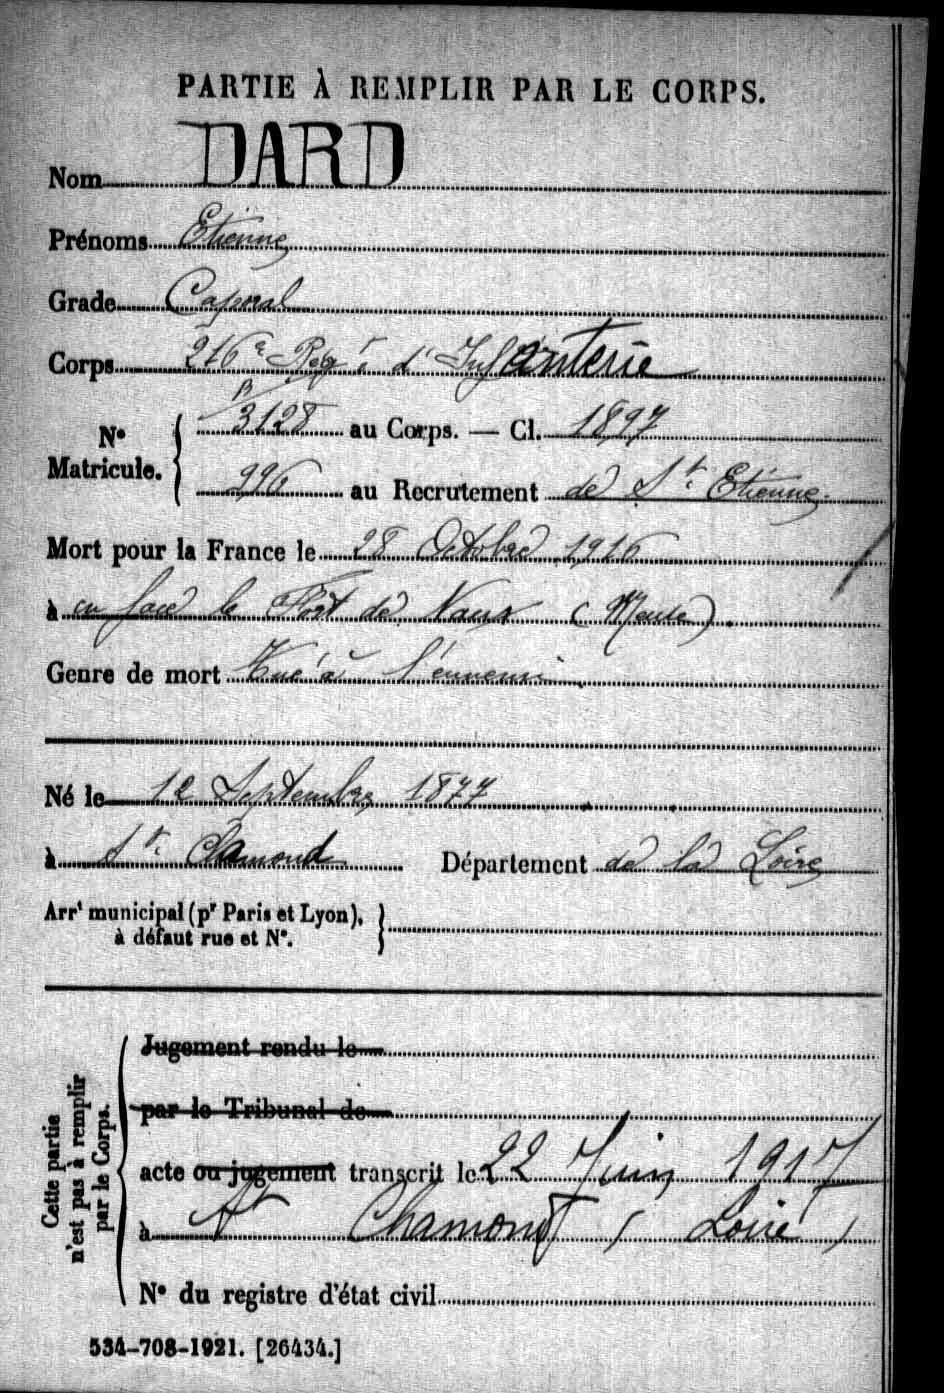 PARTIE À REMPLIR PAR LE CORPS.
Nom DARD
Prénoms Etienne
Grade Caporal
Corps 216e Regt d'Infanterie
N° Matricule. { 3128 au Corps. — Cl. 1897
996 au Recrutement de St Etienne
Mort pour la France le 28 Octobre 1916
à en face le Fort de Vaux (Meuse).
Genre de mort Tué à l'ennemi
Né le 12 Septembre 1877
à St Chamond Département de la Loire
Arrt municipal (pr Paris et Lyon), à défaut rue et N°. }
Cette partie n'est pas à remplir par le Corps. {
Jugement rendu le
par le Tribunal de
acte ou jugement transcrit le 22 Juin 1917
à St Chamond (Loire)
N° du registre d'état civil
534-708-1921. [26434.]